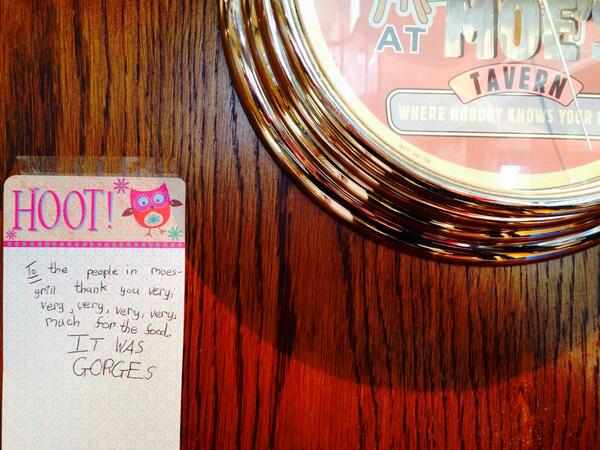 AT MOE'S
TAVERN
WHERE NOBODY KNOWS YOUR
HOOT!
To the people in moes-
grill thank you very,
very, very, very, very,
much for the food.
IT WAS
GORGES